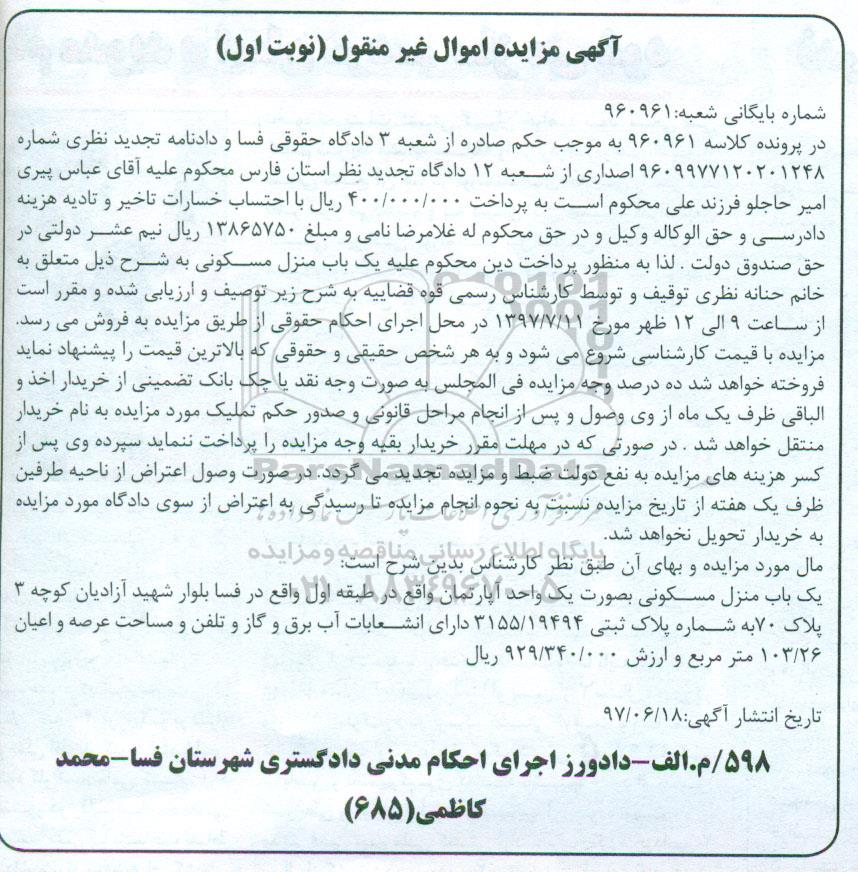 آگهی مزایده اموال غیر منقول (نوبت اول)
شماره بایگانی شعبه:۹۶۰۹۶۱
در پرونده کلاسه ۹۶۰۹۶۱ به موجب حکم صادره از شعبه ۳ دادگاه حقوقی فسا و دادنامه تجدید نظری شماره
۹۶۰۹۹۷۷۱۲۰۲۰۱۲۴۸ اصداری از شعبه ۱۲ دادگاه تجدید نظر استان فارس محکوم علیه آقای عباس پیری
امیر حاجلو فرزند علی محکوم است به پرداخت ۴۰۰/۰۰۰/۰۰۰ ریال با احتساب خسارات تاخیر و تادیه هزینه
دادرسی و حق الوکاله وکیل و در حق محکوم له غلامرضا نامی و مبلغ ۱۳۸۶۵۷۵۰ ریال نیم عشر دولتی در
حق صندوق دولت . لذا به منظور پرداخت دین محکوم علیه یک باب منزل مسکونی به شرح ذیل متعلق به
خانم حنانه نظری توقیف و توسط کارشناس رسمی قوه قضاییه به شرح زیر توصیف و ارزیابی شده و مقرر است
از ساعت ۹ الی ۱۲ ظهر مورخ ۱۳۹۷/۷/۱۱ در محل اجرای احکام حقوقی از طریق مزایده به فروش می رسد.
مزایده با قیمت کارشناسی شروع می شود و به هر شخص حقیقی و حقوقی که بالاترین قیمت را پیشنهاد نماید
فروخته خواهد شد ده درصد وجه مزایده فی المجلس به صورت وجه نقد یا چک بانک تضمینی از خریدار اخذ و
الباقی ظرف یک ماه از وی وصول و پس از انجام مراحل قانونی و صدور حکم تملیک مورد مزایده به نام خریدار
منتقل خواهد شد . در صورتی که در مهلت مقرر خریدار بقیه وجه مزایده را پرداخت ننماید سپرده وی پس از
کسر هزینه های مزایده به نفع دولت ضبط و مزایده تجدید می گردد. در صورت وصول اعتراض از ناحیه طرفین
ظرف یک هفته از تاریخ مزایده نسبت به نحوه انجام مزایده تا رسیدگی به اعتراض از سوی دادگاه مورد مزایده
به خریدار تحویل نخواهد شد.
مال مورد مزایده و بهای آن طبق نظر کارشناس بدین شرح است:
یک باب منزل مسکونی بصورت یک واحد آپارتمان واقع در طبقه اول واقع در فسا بلوار شهید آزادیان کوچه ۳
پلاک ۷۰به شماره پلاک ثبتی ۳۱۵۵/۱۹۴۹۴ دارای انشعابات آب برق و گاز و تلفن و مساحت عرصه و اعیان
۱۰۳/۲۶ متر مربع و ارزش ۹۲۹/۳۴۰/۰۰۰ ریال
تاریخ انتشار آگهی:۹۷/۰۶/۱۸
۵۹۸/م.الف-دادورز اجرای احکام مدنی دادگستری شهرستان فسا-محمد
کاظمی(۶۸۵)
ParsNamadData
پایگاه اطلاع رسانی مناقصه و مزایده
۰۲۱-۸۸۳۴۹۶۷۰-۵